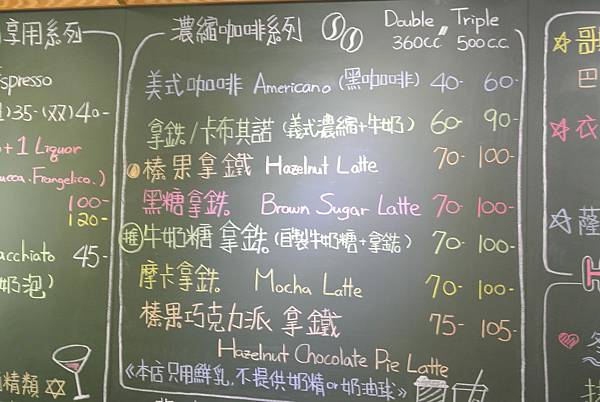 享用系列
Espresso
35-(双)40-
+1 Liquor
ucca.Frangelico.)
100-
120-
acchiato 45-
奶泡)
精類
濃縮咖啡系列 Double Triple
360c.c 500c.c.
美式咖啡 Americano (黑咖啡) 40- 60-
拿鉄/卡布其諾(義式濃縮+牛奶) 60- 90-
榛果拿鐵 Hazelnut Latte 70- 100-
黑糖拿鉄 Brown Sugar Latte 70- 100-
推 牛奶糖拿鉄(自製牛奶糖+拿鉄) 70- 100-
摩卡拿鉄 Mocha Latte 70- 100-
榛果巧克力派拿鐵 75- 105-
Hazelnut Chocolate Pie Latte
《本店只用鮮乳,不提供奶精or奶油球》
哥
巴
衣
薩
H
冬